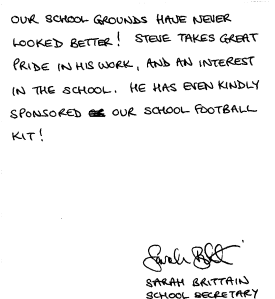 OUR SCHOOL GROUNDS HAVE NEVER
LOOKED BETTER! STEVE TAKES GREAT
PRIDE IN HIS WORK, AND AN INTEREST
IN THE SCHOOL. HE HAS EVEN KINDLY
SPONSORED OUR SCHOOL FOOTBALL
KIT!
SARAH BRITTAIN
SCHOOL SECRETARY